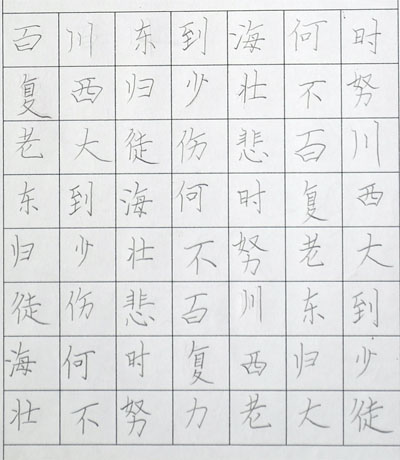 百川东到海何时
复西归少壮不努
老大徒伤悲百川
东到海何时复西
归少壮不努老大
徒伤悲百川东到
海何时复西归少
壮不努力老大徒